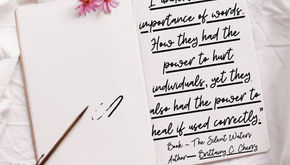 importance of words.
How they had the
power to hurt
individuals, yet they
also had the power to
heal if used correctly."
Book ~ The Silent Waters
Author— Brittainy C. Cherry